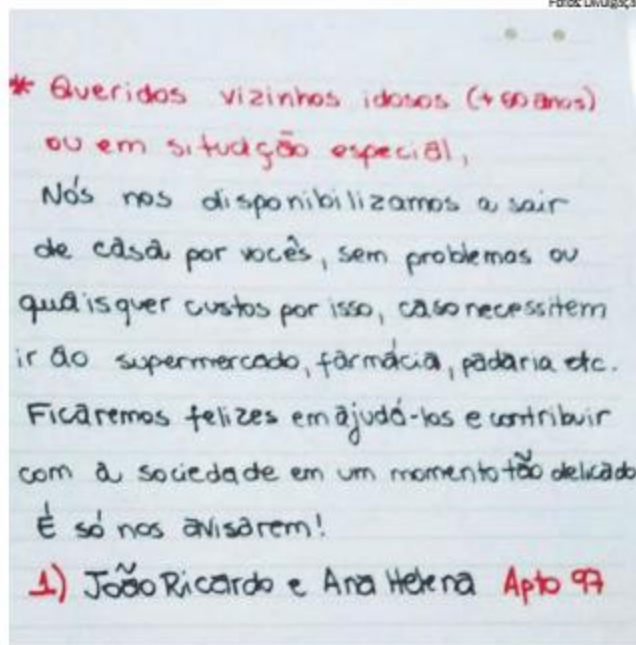 Fotos: Divulgação
* Queridos vizinhos idosos (+60 anos)
ou em situação especial,
Nós nos disponibilizamos a sair
de casa por vocês, sem problemas ou
quaisquer custos por isso, caso necessitem
ir ao supermercado, farmácia, padaria etc.
Ficaremos felizes em ajudá-los e contribuir
com a sociedade em um momento tão delicado
É só nos avisarem!
1) João Ricardo e Ana Helena Apto 97